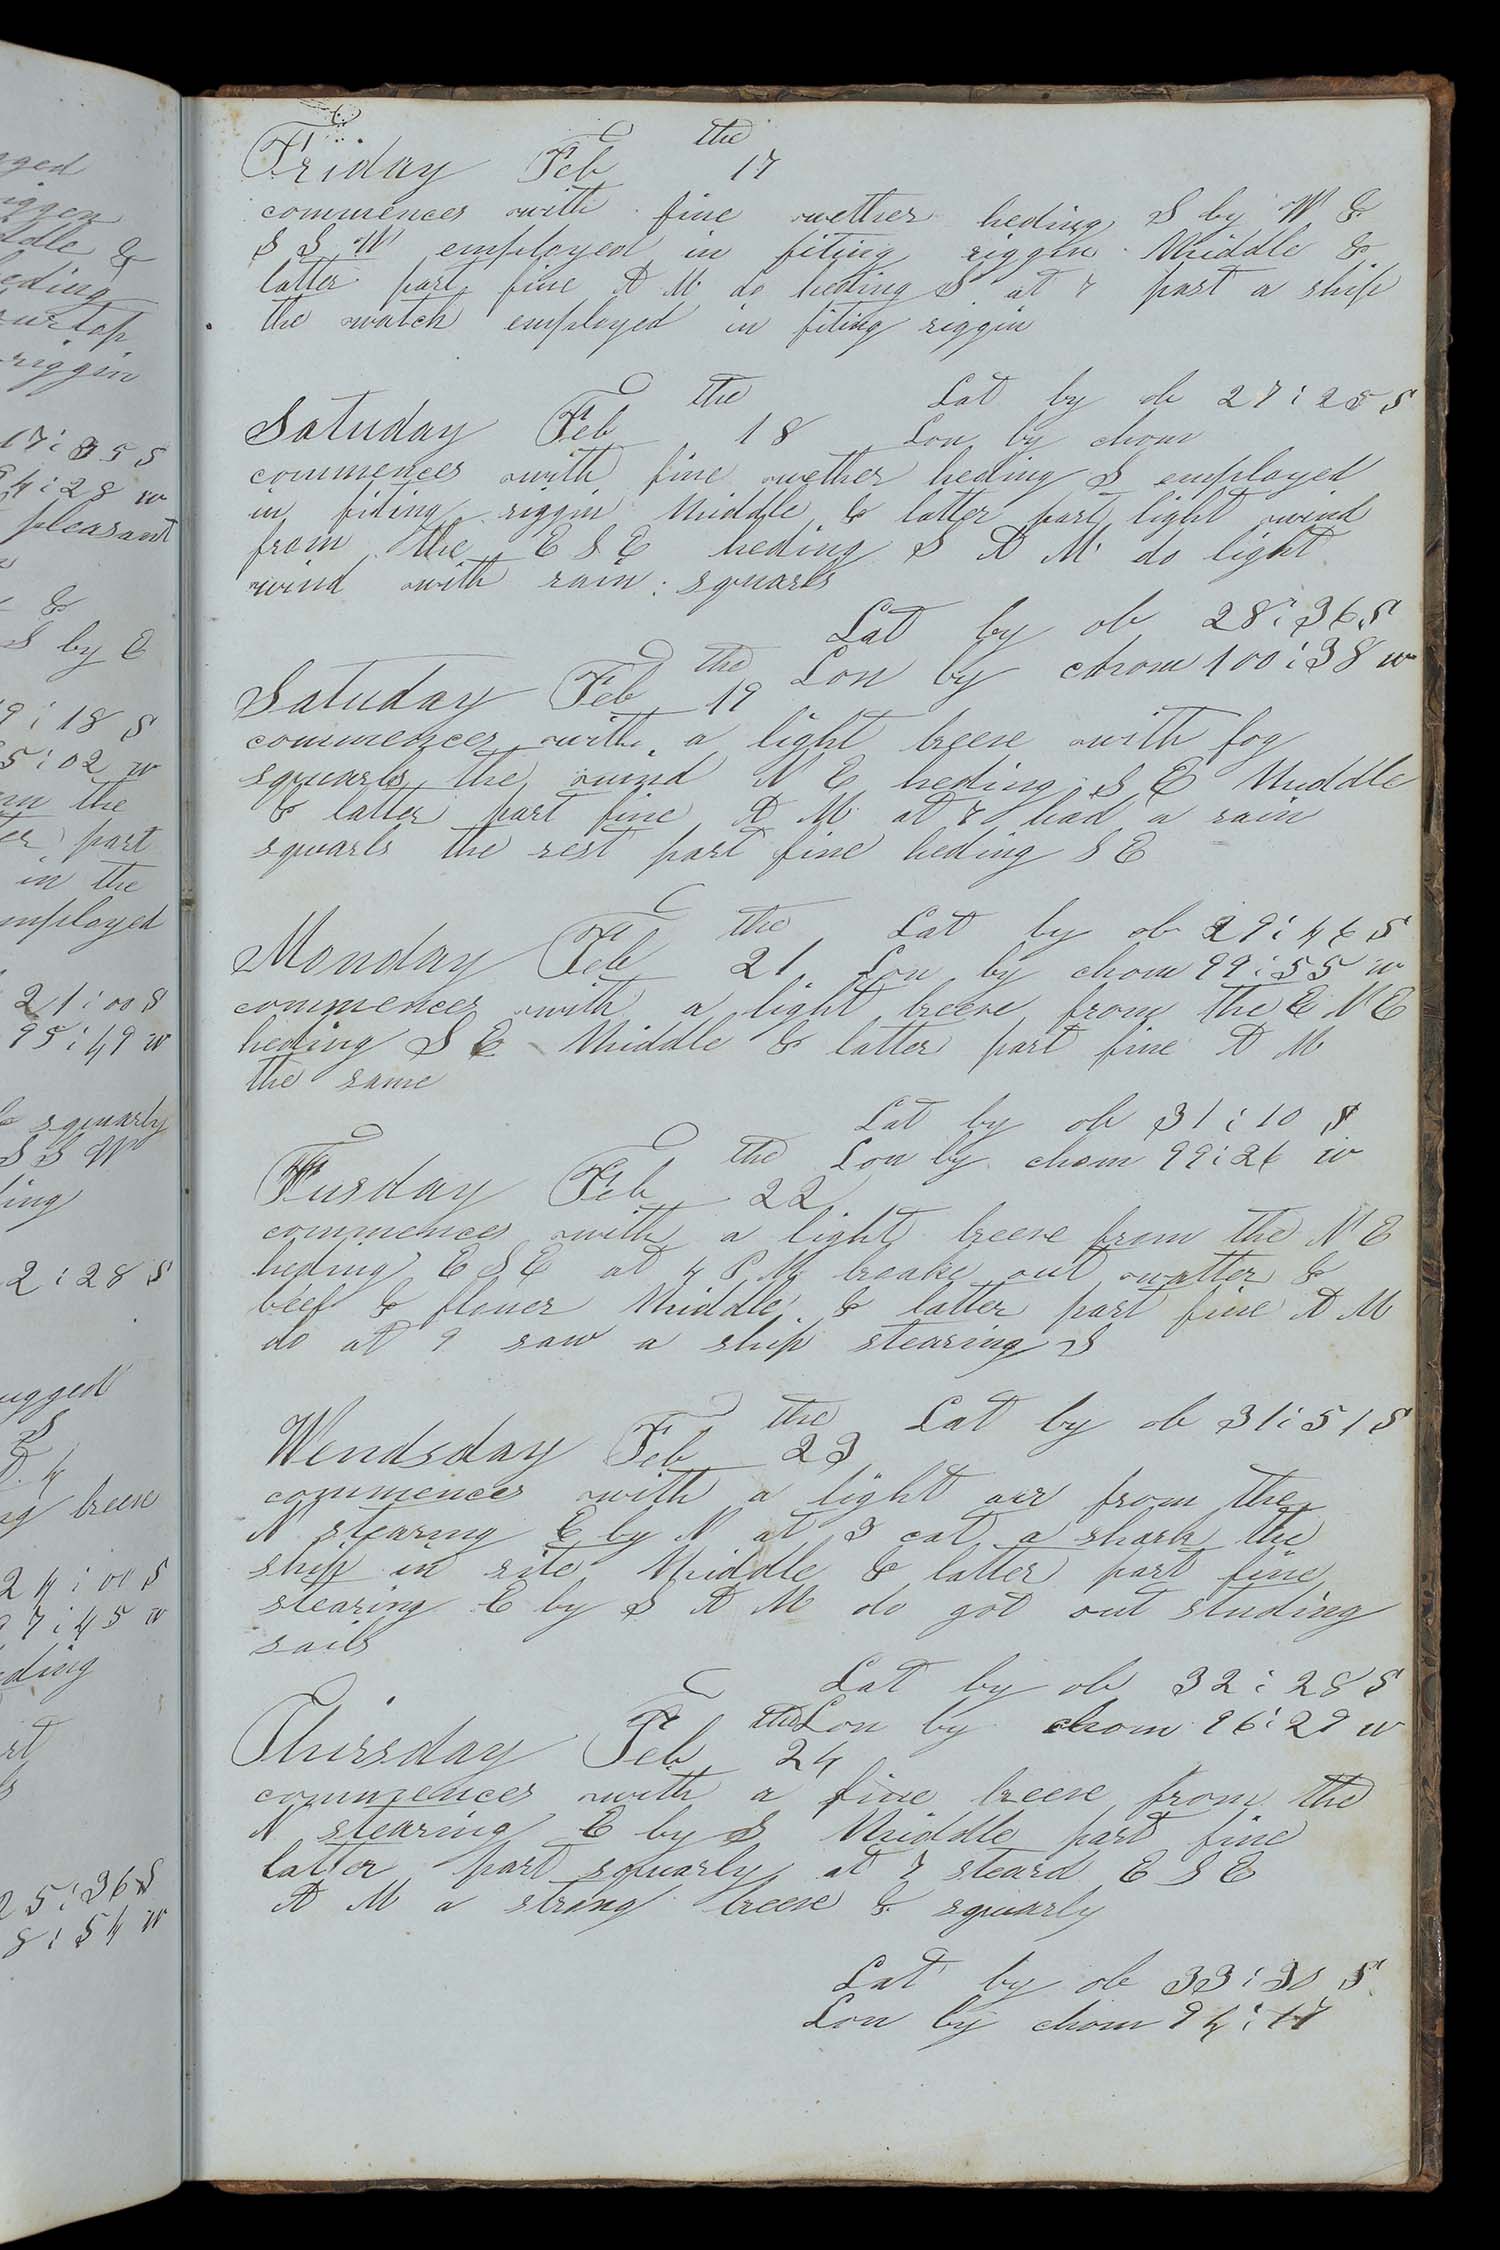 gged
iggen
ddle &
eding
ur top
riggin
17:35 S
94:28 w
pleasant
&
S by E
19:18 S
5:02 w
the
part
in the
mployed
21:00 S
95:49 w
squarly
S S W
ing
2:28 S
ugged
S
breese
24:00 S
97:45 w
eding
25:36 S
8:54 w
the
Friday Feb 17
commences with fine wether heding S by W &
S S W employed in fiting riggin Middle &
latter part fine A M do heding S at 7 past a ship
the watch employed in fiting riggin
the Lat by ob 27:25 S
Satuday Feb 18 Lon by chom
commences with fine wether heding S employed
in fiting riggin Middle & latter part light wind
from the E S E heding S A M do light
wind with rain squarls
Lat by ob 28:36 S
the Lon by chrom 100:38 w
Satuday Feb 19
commences with a light breese with fog
squarls the wind N E heding S E Middle
& latter part fine A M at 7 had a rain
squarls the rest part fine heding S E
the Lat by ob 29:46 S
Monday Feb 21 Lon by chom 99:55 w
commences with a light breese from the E N E
heding S E Middle & latter part fine A M
the same
Lat by ob 31:10 S
the Lon by chom 99:26 w
Tusday Feb 22
commences with a light breese from the N E
heding E S E at 4 P M broake out watter &
beef & flouer Middle & latter part fine A M
do at 9 saw a ship stearing S
the Lat by ob 31:51 S
Wendsday Feb 23
commences with a light aer from the
N stearing E by N at 3 cat a shark the
ship in site Middle & latter part fine
stearing E by S A M do got out studing
sails
Lat by ob 32:28 S
the Lon by chom 96:29 w
Thirsday Feb 24
commences with a fine breese from the
N stearing E by S Middle part fine
latter part squarly at 7 steard E S E
A M a strong breese & squarly
Lat by ob 33:30 S
Lon by chom 94:17